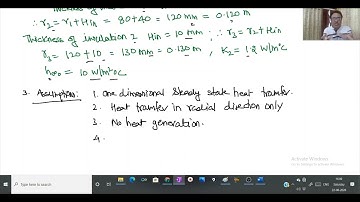 ∴ r₂ = r₁ + Hin = 80+40 = 120 mm = 0.120 m
Thickness of insulation 2 Hin = 10 mm ; ∴ r₃ = r₂ + Hin
r₃ = 120 + 10 = 130 mm = 0.130 m , K₂ = 1.2 W/m°C
h∞ = 10 W/m²°C
3. Assumptions: 1. One dimensional steady state heat transfer.
2. Heat transfer in radial direction only
3. No heat generation.
4.
Activate Windows
Type here to search